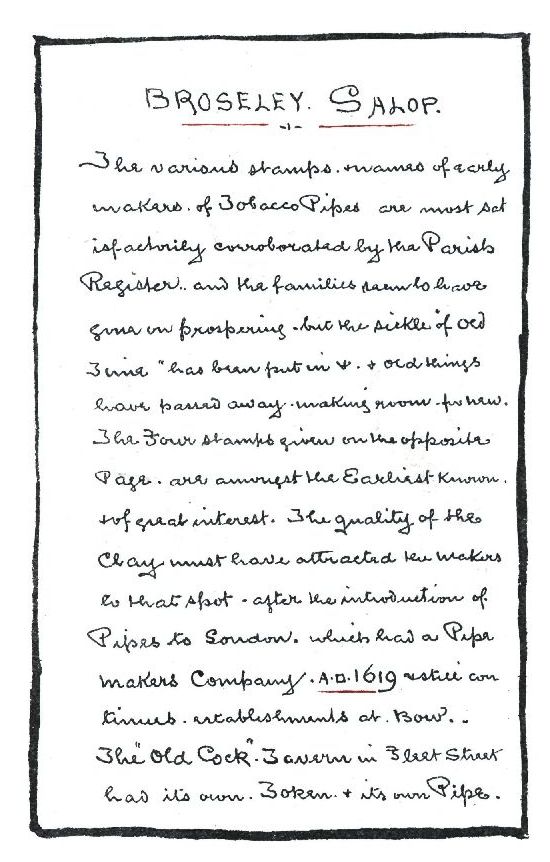 BROSELEY. SALOP.
The various stamps. & names of early
makers. of Tobacco Pipes are most sat
isfactorily corroborated by the Parish
Register.. and the families seem to have
gone on prospering. but the sickle "of old
Time" has been put in &. & old things
have passed away. making room for new.
The Four stamps given on the opposite
Page. are amongst the Earliest Known.
& of great interest. The quality of the
Clay must have attracted the makers
to that spot - after the introduction of
Pipes to London. which had a Pipe
makers Company. A.D. 1619 & still con
tinues. establishments at. Bow..
The "Old Cock". Tavern in Fleet Street
had its own. Token. & its own Pipe.